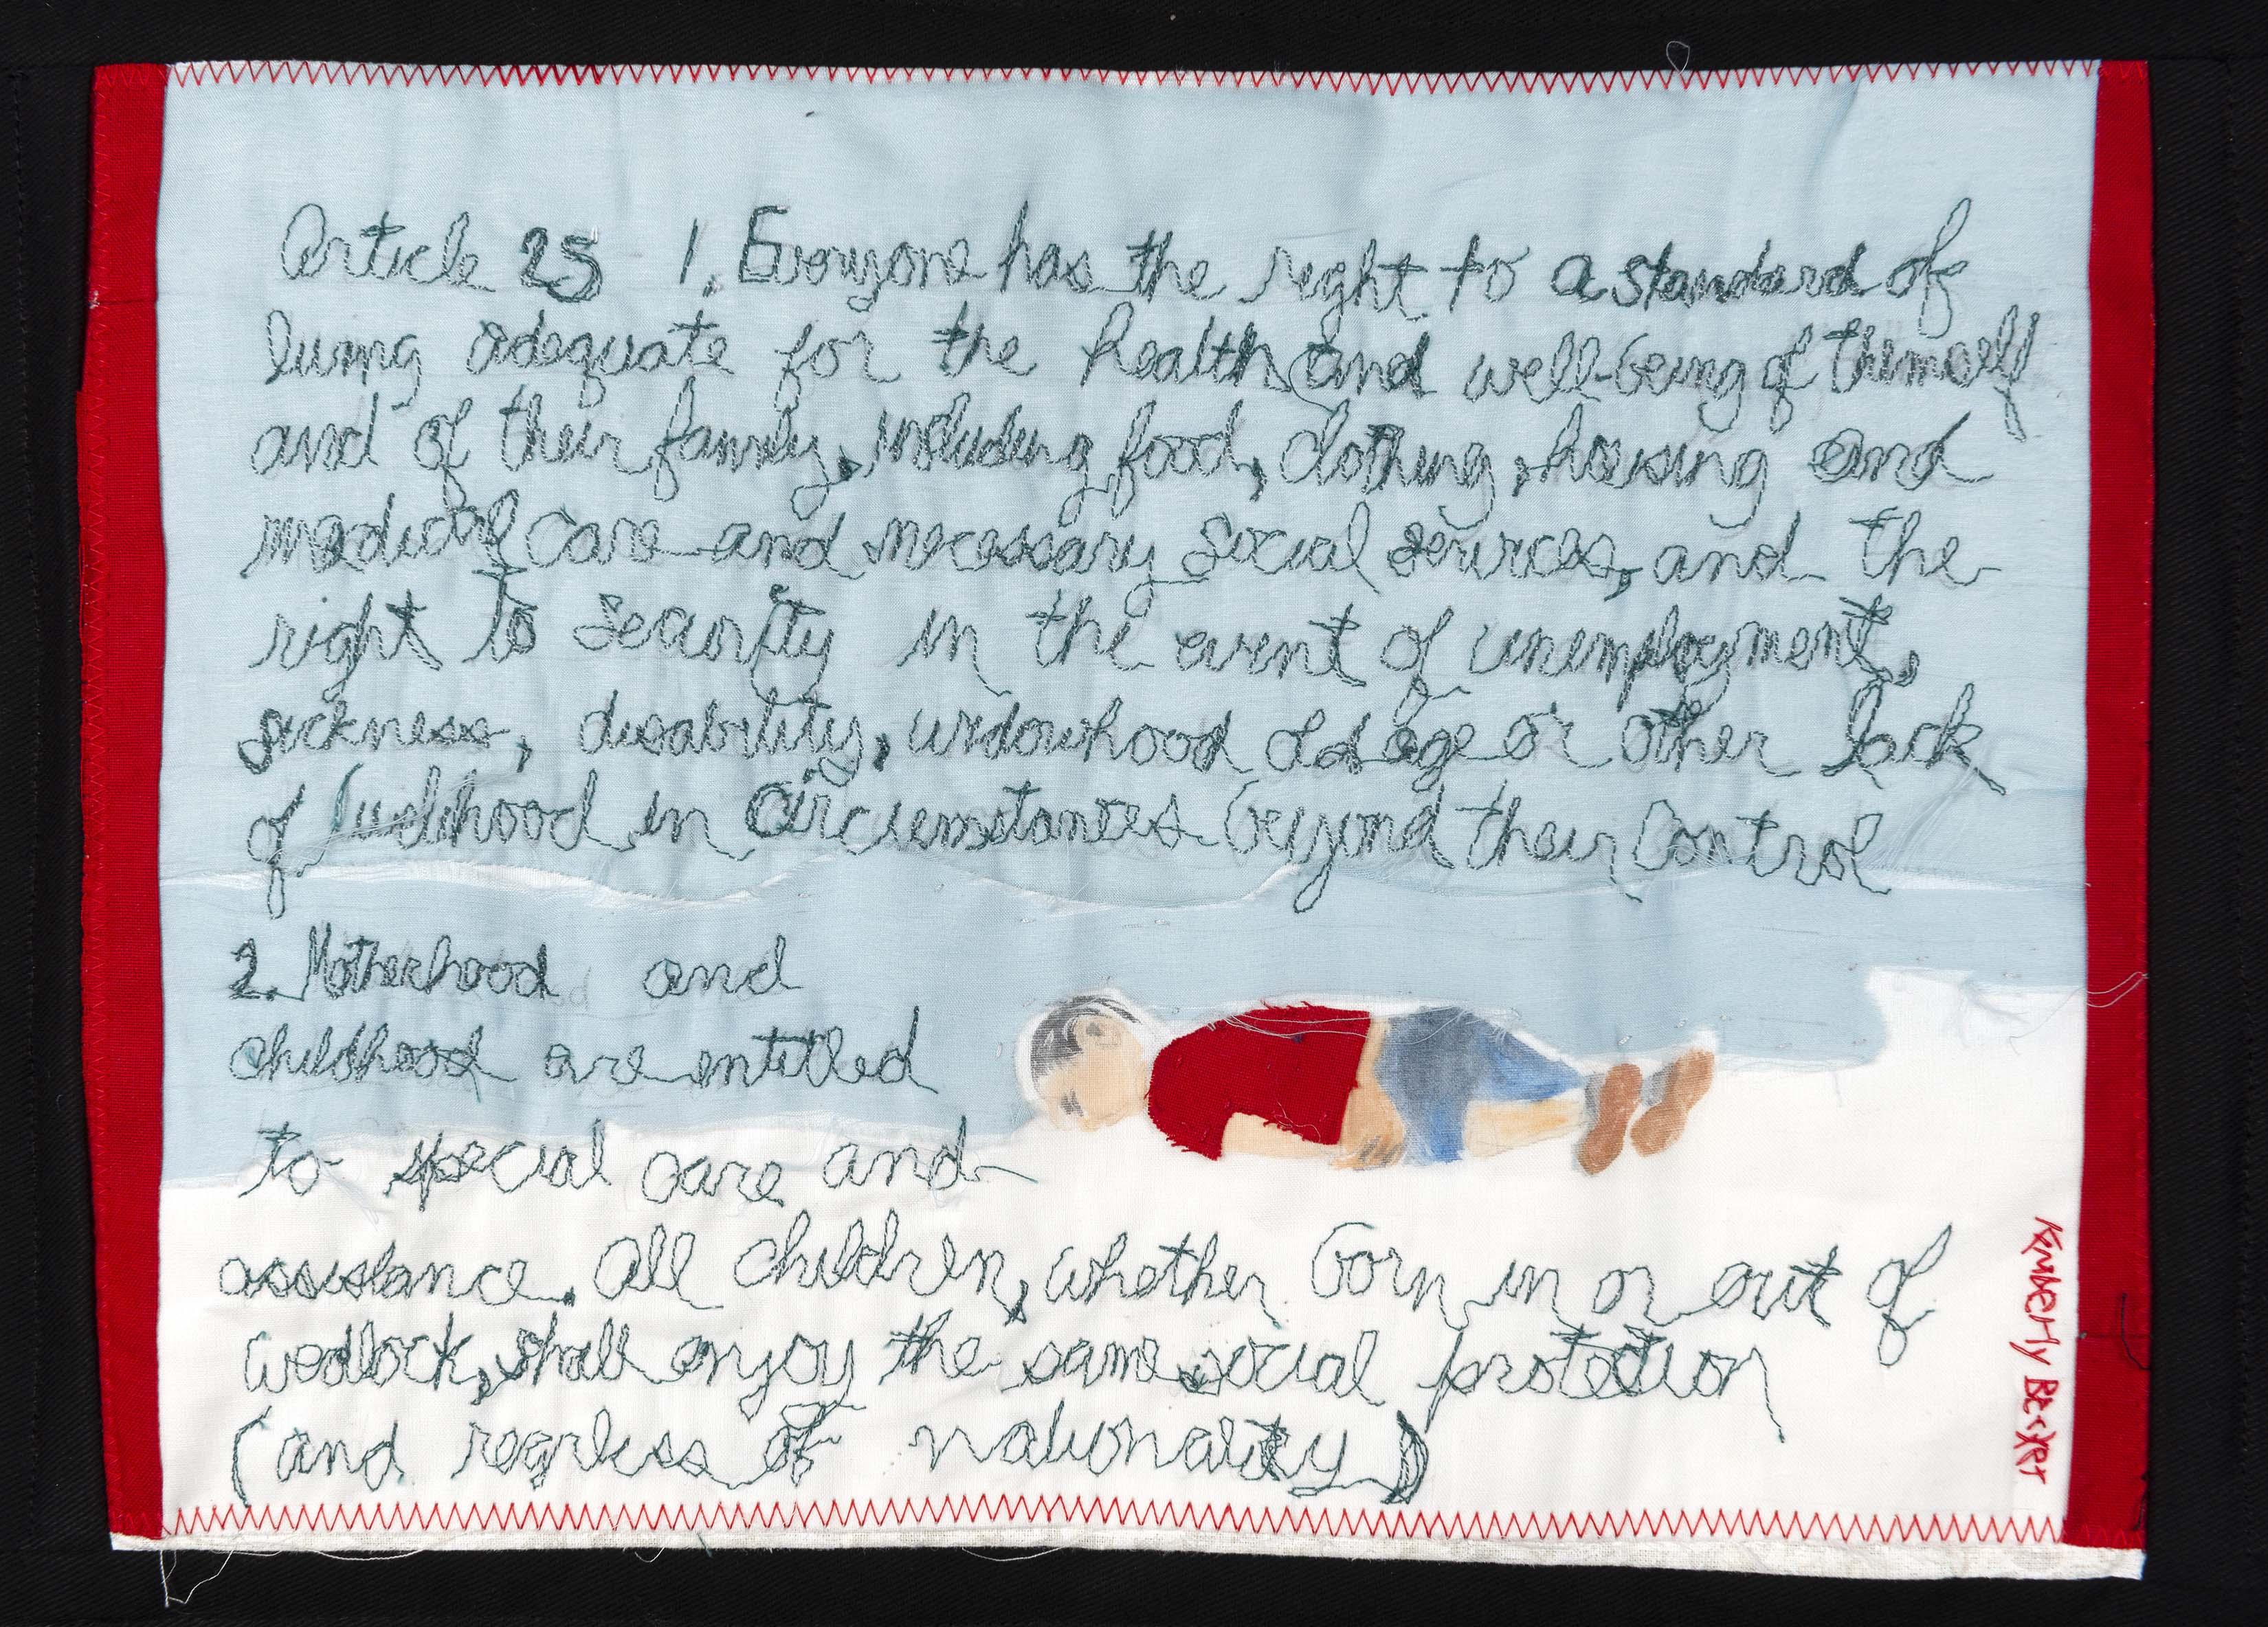 Article 25 1. Everyone has the right to a standard of
living adequate for the health and well-being of themself
and of their family, including food, clothing, housing and
medical care and necessary social services, and the
right to security in the event of unemployment,
sickness, disability, widowhood old age or other lack
of livelihood in circumstances beyond their control
2. Motherhood and
childhood are entitled
to special care and
assistance. All children, whether born in or out of
wedlock, shall enjoy the same social protection
(and regrless of nationality)
Kimberly Becker